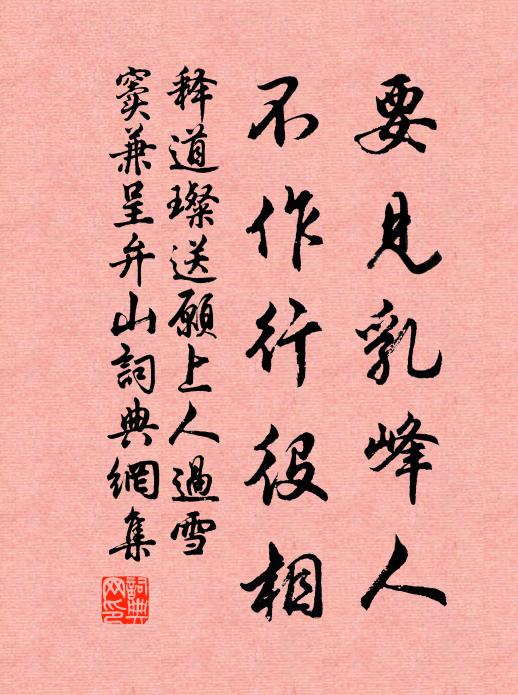 要見乳峰人
不作行役相
释道璨送願上人過雪
窦兼呈弁山詞典網集
詞典網印